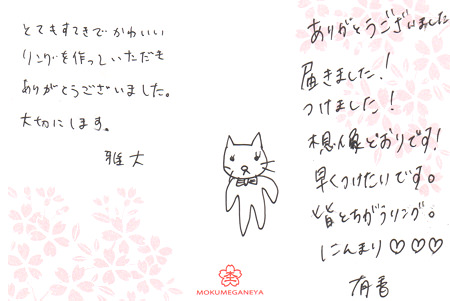 とてもすてきで かわいい
リングを作っていただき
ありがとうございました。
大切にします。
雅大
ありがとうございました
届きました!
つけました!
想像どおりです!
早くつけたいです。
皆とちがうリング。
にんまり♡♡♡
有香
MOKUMEGANEYA